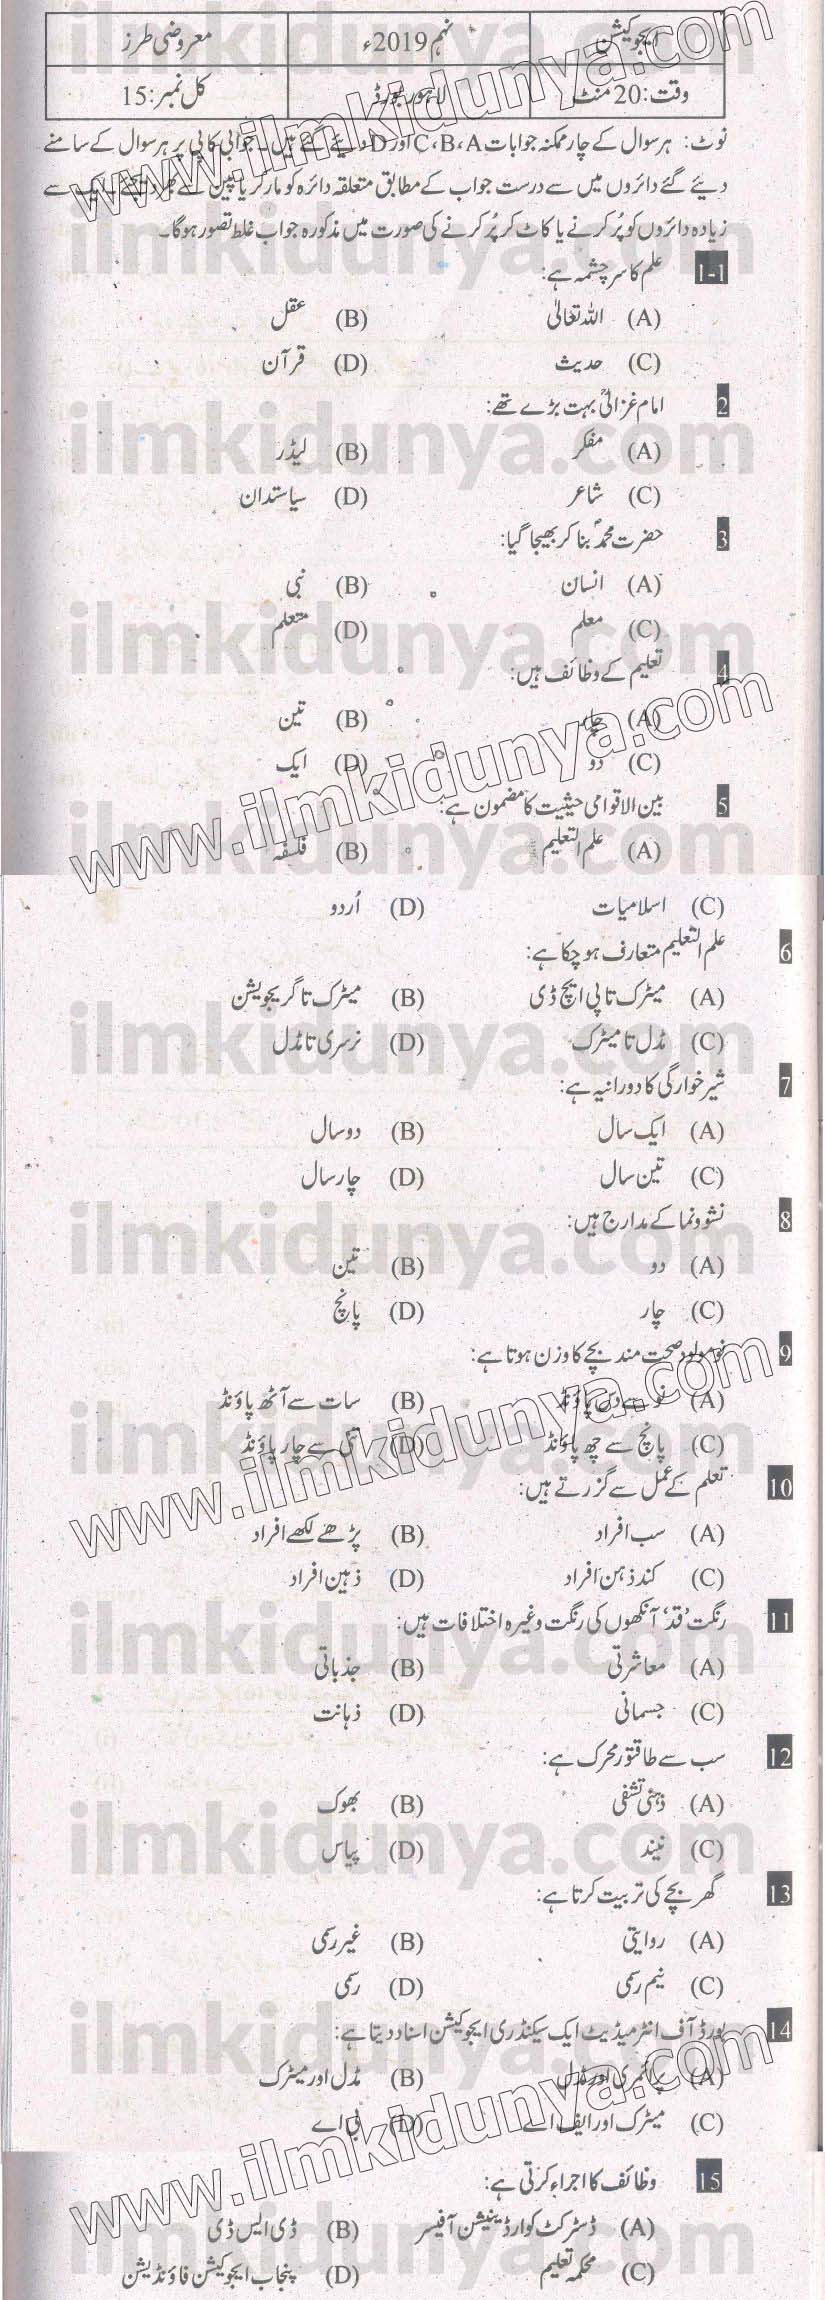 ایجوکیشن نہم 2019ء معروضی طرز
وقت:20 منٹ لاہور بورڈ کل نمبر:15
نوٹ: ہر سوال کے چار ممکنہ جوابات C،B،A اور D دیئے گئے ہیں۔ جوابی کاپی پر ہر سوال کے سامنے
دیئے گئے دائروں میں سے درست جواب کے مطابق متعلقہ دائرہ کو مارکر یا پین سے بھر دیجئے۔ ایک سے
زیادہ دائروں کو پُر کرنے یا کاٹ کر پُر کرنے کی صورت میں مذکورہ جواب غلط تصور ہوگا۔
1-1 علم کا سرچشمہ ہے:
(A) اللہ تعالیٰ (B) عقل
(C) حدیث (D) قرآن
2 امام غزالیؒ بہت بڑے تھے:
(A) مفکر (B) لیڈر
(C) شاعر (D) سیاستدان
3 حضرت محمدؐ بنا کر بھیجا گیا:
(A) انسان (B) نبی
(C) معلم (D) متعلم
4 تعلیم کے وظائف ہیں:
(A) چار (B) تین
(C) دو (D) ایک
5 بین الاقوامی حیثیت کا مضمون ہے:
(A) علم التعلیم (B) فلسفہ
(C) اسلامیات (D) اُردو
6 علم التعلیم متعارف ہو چکا ہے:
(A) میٹرک تا پی ایچ ڈی (B) میٹرک تا گریجویشن
(C) مڈل تا میٹرک (D) نرسری تا مڈل
7 شیر خوارگی کا دورانیہ ہے:
(A) ایک سال (B) دو سال
(C) تین سال (D) چار سال
8 نشوونما کے مدارج ہیں:
(A) دو (B) تین
(C) چار (D) پانچ
9 نومولود صحت مند بچے کا وزن ہوتا ہے:
(A) نو سے دس پاؤنڈ (B) سات سے آٹھ پاؤنڈ
(C) پانچ سے چھ پاؤنڈ (D) تین سے چار پاؤنڈ
10 تعلم کے عمل سے گزرتے ہیں:
(A) سب افراد (B) پڑھے لکھے افراد
(C) کند ذہن افراد (D) ذہین افراد
11 رنگت، قد، آنکھوں کی رنگت وغیرہ اختلافات ہیں:
(A) معاشرتی (B) جذباتی
(C) جسمانی (D) ذہانت
12 سب سے طاقتور محرک ہے:
(A) ذہنی تشفی (B) بھوک
(C) نیند (D) پیاس
13 گھر بچے کی تربیت کرتا ہے:
(A) روایتی (B) غیر رسمی
(C) نیم رسمی (D) رسمی
14 بورڈ آف انٹرمیڈیٹ ایک سیکنڈری ایجوکیشن اسناد دیتا ہے:
(A) پرائمری اور مڈل (B) مڈل اور میٹرک
(C) میٹرک اور ایف اے (D) بی اے
15 وظائف کا اجراء کرتی ہے:
(A) ڈسٹرکٹ کوارڈینیشن آفیسر (B) ڈی ایس ڈی
(C) محکمہ تعلیم (D) پنجاب ایجوکیشن فاؤنڈیشن